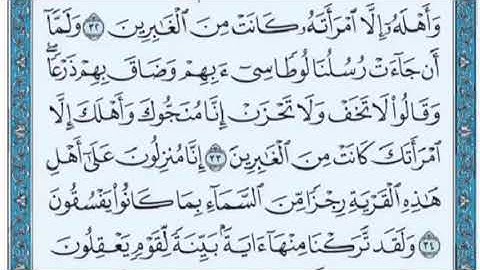 وَأَهْلَهُۥٓ إِلَّا ٱمْرَأَتَهُۥ كَانَتْ مِنَ ٱلْغَٰبِرِينَ ٣٢ وَلَمَّآ
أَن جَآءَتْ رُسُلُنَا لُوطًا سِىٓءَ بِهِمْ وَضَاقَ بِهِمْ ذَرْعًا ۖ
وَقَالُوا۟ لَا تَخَفْ وَلَا تَحْزَنْ إِنَّا مُنَجُّوكَ وَأَهْلَكَ إِلَّا
ٱمْرَأَتَكَ كَانَتْ مِنَ ٱلْغَٰبِرِينَ ٣٣ إِنَّا مُنزِلُونَ عَلَىٰٓ أَهْلِ
هَٰذِهِ ٱلْقَرْيَةِ رِجْزًا مِّنَ ٱلسَّمَآءِ بِمَا كَانُوا۟ يَفْسُقُونَ
٣٤ وَلَقَد تَّرَكْنَا مِنْهَآ ءَايَةًۢ بَيِّنَةً لِّقَوْمٍ يَعْقِلُونَ